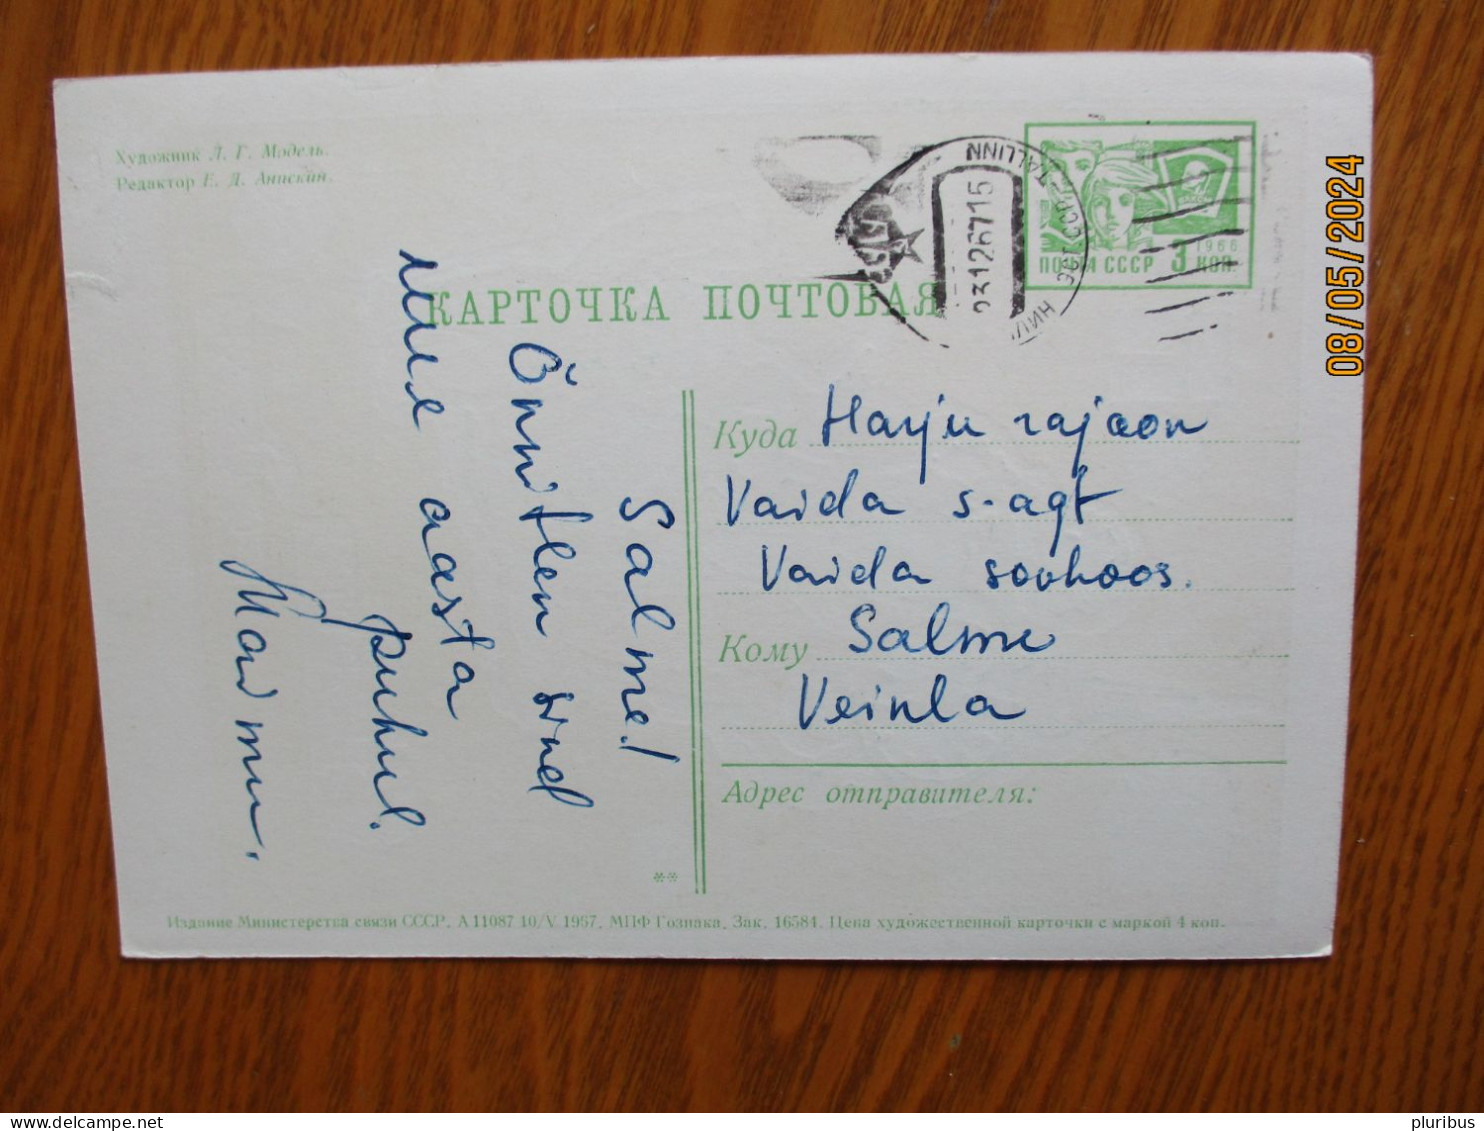 Художник Л. Г. Модель.
Редактор Е. Д. Анискин.
КАРТОЧКА ПОЧТОВАЯ
TALLINN
23126715
1966
ПОЧТА СССР 3 КОП.
Salme!
Õnnitlen sind
uue aasta
puhul.
Куда Harju rajoon
Vaida s-agt
Vaida sovhoos.
Кому Salme
Veinla
Адрес отправителя:
**
Издание Министерства связи СССР. А 11087 10/V 1967. МПФ Гознака. Зак. 16584. Цена художественной карточки с маркой 4 коп.
08/05/2024
pluribus
www.delcampe.net